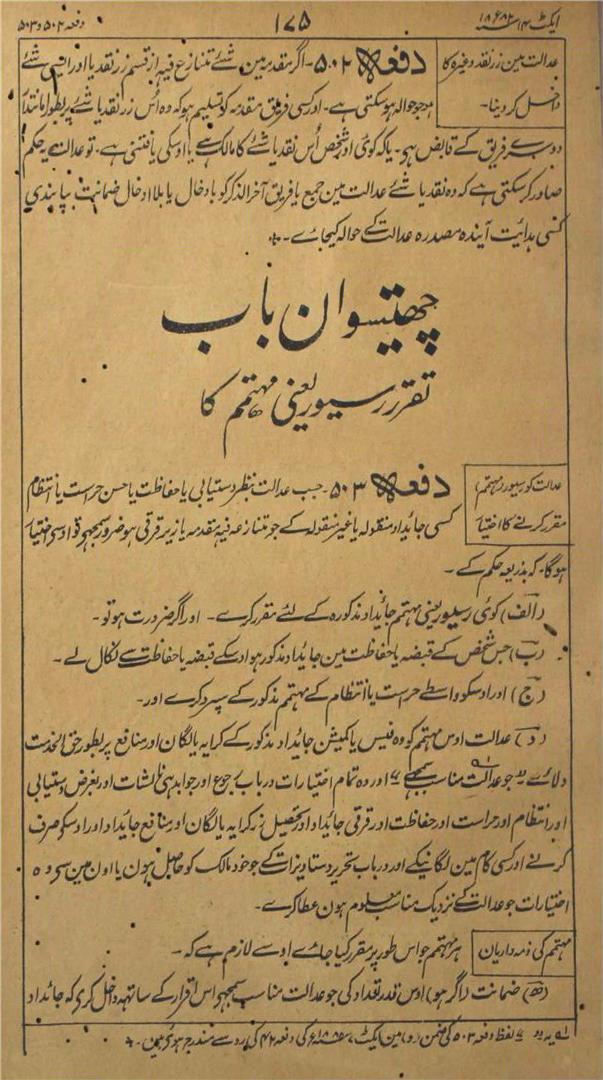 ایکٹ ۱۴ سنہ ۱۸۸۲ء
۱۷۵
دفعہ ۵۰۲ و ۵۰۳
عدالت مین زر نقد وغیرہ کا
داخل کر دینا۔
دفعہ ۵۰۲۔ اگر مقدمہ مین شئے متنازع فیہ از قسم زر نقد یا اور ایسی شئے
ہو جو حوالہ ہو سکتی ہے۔ اور کسی فریق مقدمہ کو تسلیم ہو کہ وہ اُس زر نقد یا شئے پر بطور امانتدار
دوسرے فریق کے قابض ہی۔ یا کہ کوئی اور شخص اُس نقد یا شئے کا مالک ہے یا اوسکی یافتنی ہے۔ تو عدالت یہ حکم
صادر کر سکتی ہے کہ وہ نقد یا شئے عدالت مین جمع یا فریق آخر الذکر کو بادخال یا بلا ادخال ضمانت بپابندی
کسی ہدایت آیندہ مصدرہ عدالت کے حوالہ کیجاے۔
چھتیسوان باب
تقرر رسیور یعنی مہتمم کا
عدالت کو رسیور (مہتمم)
مقرر کرنے کا اختیار
دفعہ ۵۰۳۔ جب عدالت بنظر دستیابی یا حفاظت یا حسن حراست یا انتظام
کسی جائداد منقولہ یا غیر منقولہ کے جو متنازعہ فیہ مقدمہ یا زیر قرقی ہو ضرور سمجھے تو اوسے اختیار
ہوگا۔ کہ بذریعہ حکم کے۔
(الف) کوئی رسیور یعنی مہتمم جائداد مذکورہ کے لئے مقرر کرے۔ اور اگر ضرورت ہو تو۔
(ب) جس شخص کے قبضہ یا حفاظت مین جائداد مذکور ہو اوسکے قبضہ یا حفاظت سے نکال لے۔
(ج) اور اوسکو واسطے حراست یا انتظام کے مہتمم مذکور کے سپرد کرے اور۔
(د) عدالت اوس مہتمم کو وہ فیس یا کمیشن جائداد مذکور کے کرایہ یا لگان اور منافع پر بطور حق الخدمت
دلائے جو عدالت مناسب سمجھے اور وہ تمام اختیارات در باب رجوع اور جوابدہی نالشات اور بغرض دستیابی
اور انتظام اور حراست اور حفاظت اور ترقی جائداد اور تحصیل زر کرایہ یا لگان اور منافع جائداد اور اوسکو صرف
کرنے اور کسی کام مین لگانیکے اور درباب تحریر دستاویزات کے جو خود مالک کو حاصل ہون یا اون مین سے وہ
اختیارات جو عدالت کے نزدیک مناسب معلوم ہون عطا کرے۔
مہتمم کی ذمہ داریان
ہر مہتمم جو اس طور پر مقرر کیا جاے اوسے لازم ہے کہ۔
(ھ) ضمانت (اگر ہو) اوس قدر تعداد کی جو عدالت مناسب سمجھے اس اقرار کے ساتھ داخل کرے کہ جائداد
لفظ دفعہ ۵۰۳ کی ضمن (د) مین ایکٹ ۷ سنہ ۱۸۸۸ء کی دفعہ ۴۲ کی رو سے مندرج ہوئی ہین۔